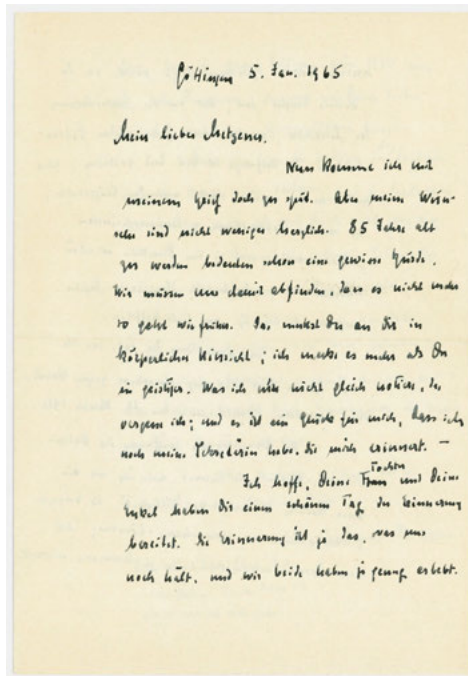 Göttingen 5. Jan. 1965
Mein lieber Metzener.
Nun komme ich mit
meinem Brief doch zu spät. Aber meine Wün-
sche sind nicht weniger herzlich. 85 Jahre alt
zu werden bedeutet schon eine gewisse Hürde.
Wir müssen uns damit abfinden, dass es nicht mehr
so geht wie früher. Das merkst Du an Dir in
körperlicher Hinsicht; ich merke es mehr als Du
in geistiger. Was ich nicht gleich notiere, das
vergesse ich; und es ist ein Glück für mich, dass ich
noch meine Sekretärin habe, die mich erinnert. –
Ich hoffe, Deine Tochter und Deine
Enkel haben Dir einen schönen Tag der Erinnerung
bereitet. Die Erinnerung ist ja das, was uns
noch hält, und wir beide haben ja genug erlebt.